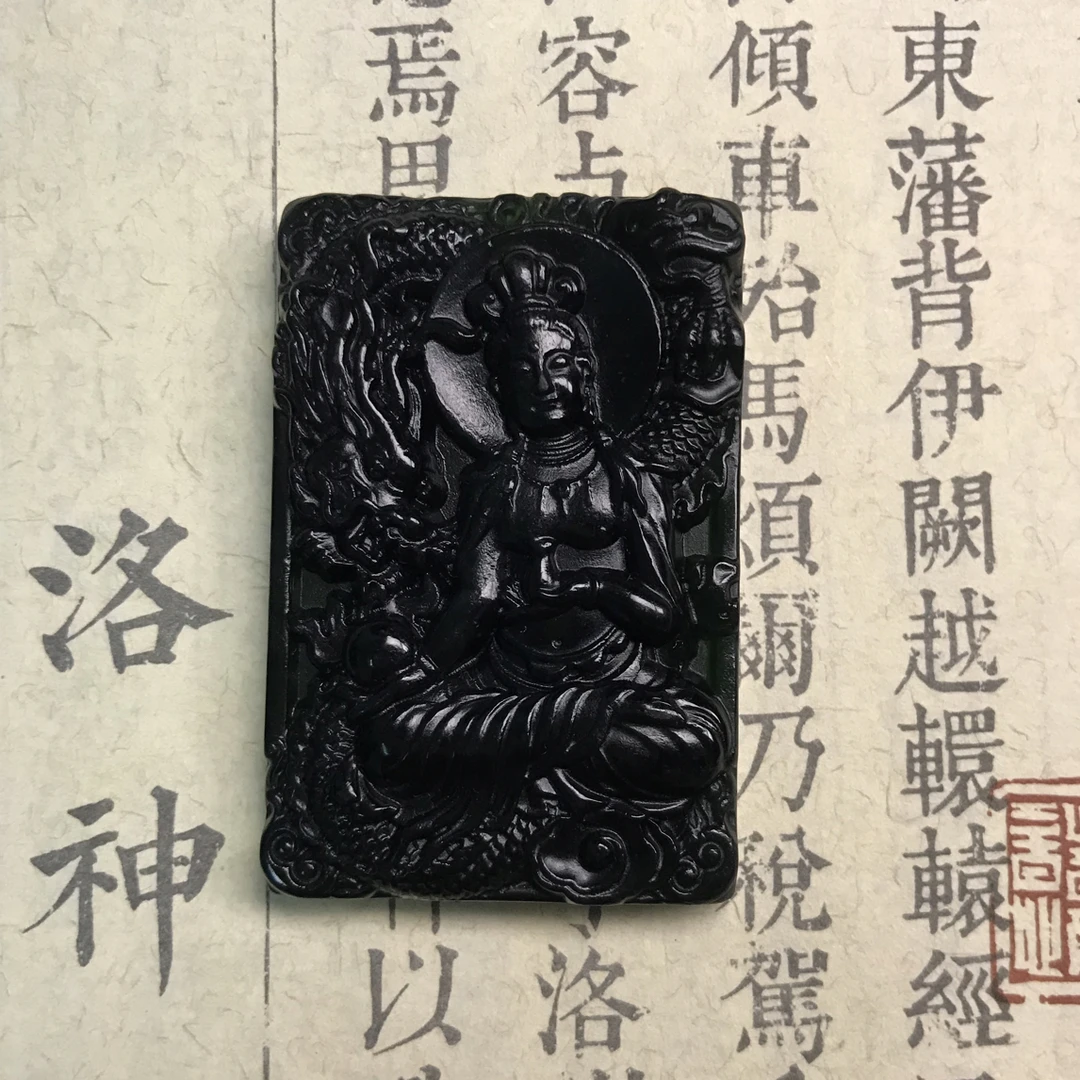 東藩背伊闕越轘轅經
傾車殆馬煩爾乃稅駕
容
洛
焉思
以
洛神